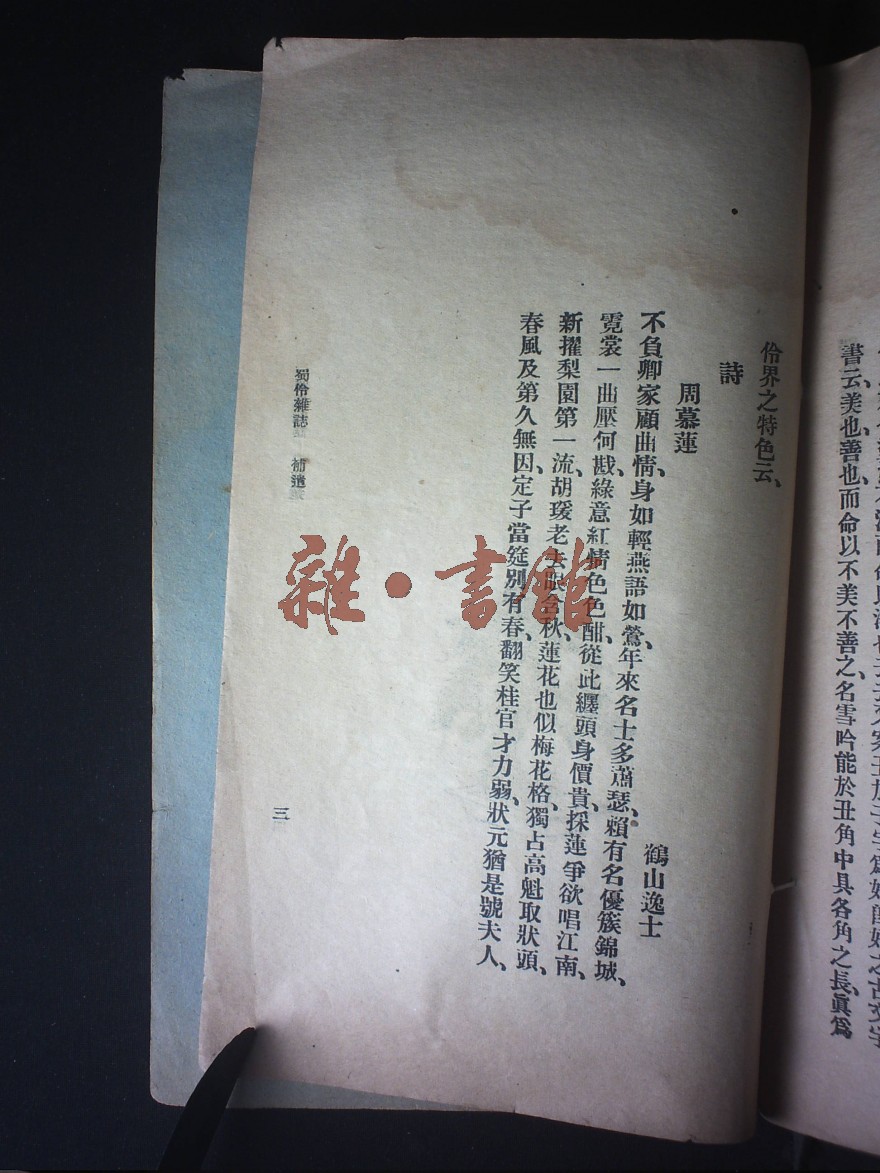 書云、美也、善也、而命以不美不善之名、雪吟能於丑角中具各角之長、眞爲
伶界之特色云、
詩
周慕蓮
鶴山逸士
不負卿家顧曲情、身如輕燕語如鶯、年來名士多蕭瑟、賴有名優簇錦城、
霓裳一曲壓何戡、綠意紅情色色酣、從此纏頭身價貴、採蓮爭欲唱江南、
新擢梨園第一流、胡瑗老去眼含秋、蓮花也似梅花格、獨占高魁取狀頭、
春風及第久無因、定子當筵別有春、翻笑桂官才力弱、狀元猶是號夫人、
蜀伶雜誌 補遺
三
雜·書館